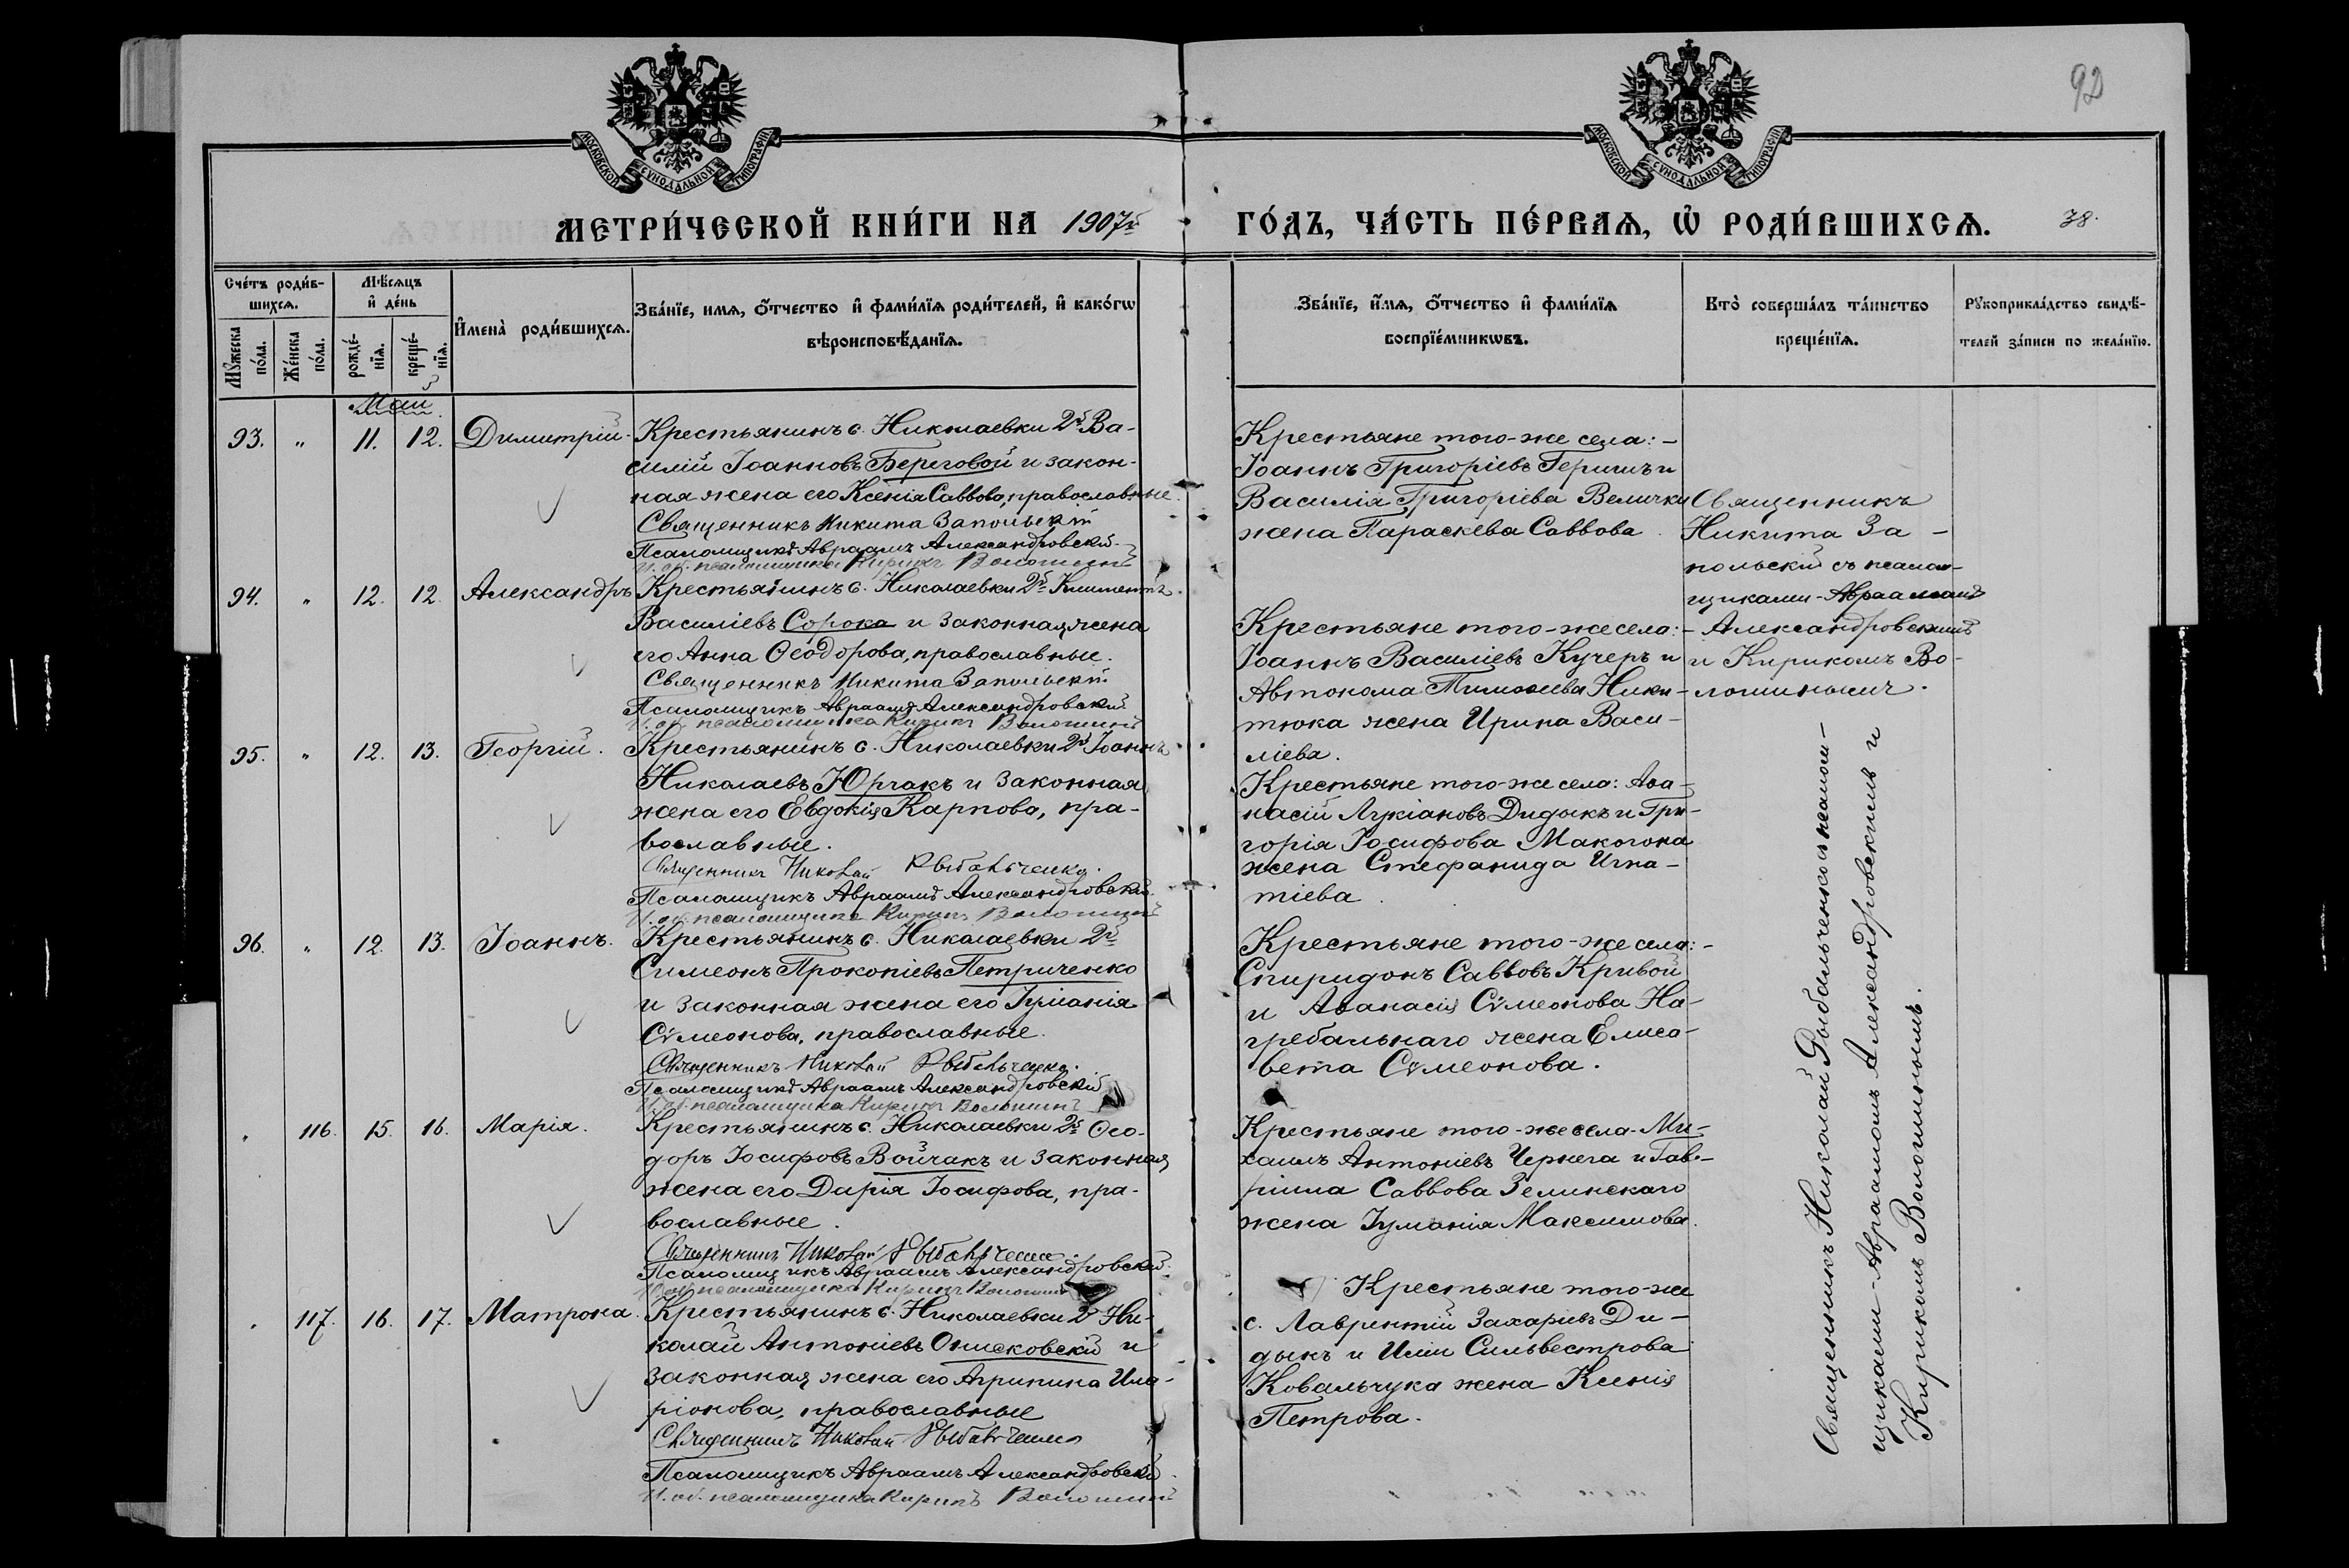 МОСКОВСКОЙ СѴНОДАЛЬНОЙ ТИПОГРАФІИ
МОСКОВСКОЙ СѴНОДАЛЬНОЙ ТИПОГРАФІИ
92
МЕТРИ́ЧЕСКОЙ КНИ́ГИ НА 1907й
ГО́ДЪ, ЧА́СТЬ ПЕ́РВАѦ, Ѡ҆ РОДИ́ВШИХСѦ.
38.
Сче́тъ роди́в-
шихсѧ.
Мꙋ́жеска
по́ла.
Же́нска
по́ла.
Мѣ́сѧцъ
и҆ де́нь
рожде́-
нїѧ.
креще́-
нїѧ.
И҆мена̀ роди́вшихсѧ.
Зва́нїе, имѧ, ѻ҆́тчество и҆ фами́лїѧ роди́телей, и҆ како́гѡ
вѣроисповѣ́данїѧ.
Зва́нїе, и҆́мѧ, ѻ҆́тчество и҆ фами́лїѧ
воспрїе́мникѡвъ.
Кто̀ соверша́лъ та́инство
креще́нїѧ.
Рꙋкоприкла́дство свидѣ́-
телей за́писи по жела́нїю.
Маи
93. " 11. 12. Димитрій.
Крестьянинъ с. Николаевки 2й Ва-
силій Іоанновъ Береговой и закон-
ная жена его Ксенія Саввова, православные.
Священникъ Никита Запольскій
Псаломщикъ Авраамъ Александровскій.
И. об. псаломщика Кирикъ Волошинъ
Крестьяне того-же села:-
Іоаннъ Григоріевъ Геричъ и
Василія Григоріева Велички
жена Параскева Саввова.
Священникъ
Никита За-
польскій съ псалом-
щиками-Авраамомъ
Александровскимъ
и Кирикомъ Во-
лошинымъ.
94. " 12. 12. Александръ
Крестьянинъ с. Николаевки 2й Климентъ
Василіевъ Сорока и законная жена
его Анна Ѳеодорова, православные.
Священникъ Никита Запольскій
Псаломщикъ Авраамъ Александровскій
И. об. псаломщика Кирикъ Волошинъ
Крестьяне того-же села:-
Іоаннъ Василіевъ Кучеръ и
Автонома Тимоѳеева Ники-
тюка жена Ирина Васи-
ліева.
95. " 12. 13. Георгій.
Крестьянинъ с. Николаевки 2й Іоаннъ
Николаевъ Юрчакъ и законная
жена его Евдокія Карпова, пра-
вославные.
Священникъ Николай Рыбальченко.
Псаломщикъ Авраамъ Александровскій.
И. об. псаломщика Кирикъ Волошинъ
Крестьяне того-же села: Аѳа-
насій Лукіановъ Дидыкъ и Гри-
горія Іосифова Макогона
жена Стефанида Игна-
тіева.
96. " 12. 13. Іоаннъ.
Крестьянинъ с. Николаевки 2й
Симеонъ Прокопіевъ Петриченко
и законная жена его Іуліанія
Сѵмеонова, православные.
Священникъ Николай Рыбальченко.
Псаломщикъ Авраамъ Александровскій
И. об. псаломщика Кирикъ Волошинъ
Крестьяне того-же села:-
Спиридонъ Саввовъ Кривой
и Аѳанасія Сѵмеонова На-
гребальнаго жена Елиса-
вета Сѵмеонова.
" 116. 15. 16. Марія.
Крестьянинъ с. Николаевки 2й Ѳео-
доръ Іосифовъ Войчакъ и законная
жена его Дарія Іосифова, пра-
вославные.
Священникъ Николай Рыбальченко
Псаломщикъ Авраамъ Александровскій.
И. об. псаломщика Кирикъ Волошинъ
Крестьяне того-же села-Ми-
хаилъ Антоніевъ Чернега и Гав-
ріила Саввова Зелинскаго
жена Іуліанія Максимова.
" 117. 16. 17. Матрона.
Крестьянинъ с. Николаевки 2й Ни-
колай Антоніевъ Онисковскій и
законная жена его Агрипина Ила-
ріонова, православные
Священникъ Николай Рыбальченко
Псаломщикъ Авраамъ Александровскій.
И. об. псаломщика Кирикъ Волошинъ
Крестьяне того-же
с. Лаврентій Захаріевъ Ди-
дыкъ и Иліи Сильвестрова
Ковальчука жена Ксенія
Петрова.
Священникъ Николай Рыбальченко съ псалом-
щиками-Авраамомъ Александровскимъ и
Кирикомъ Волошинымъ.